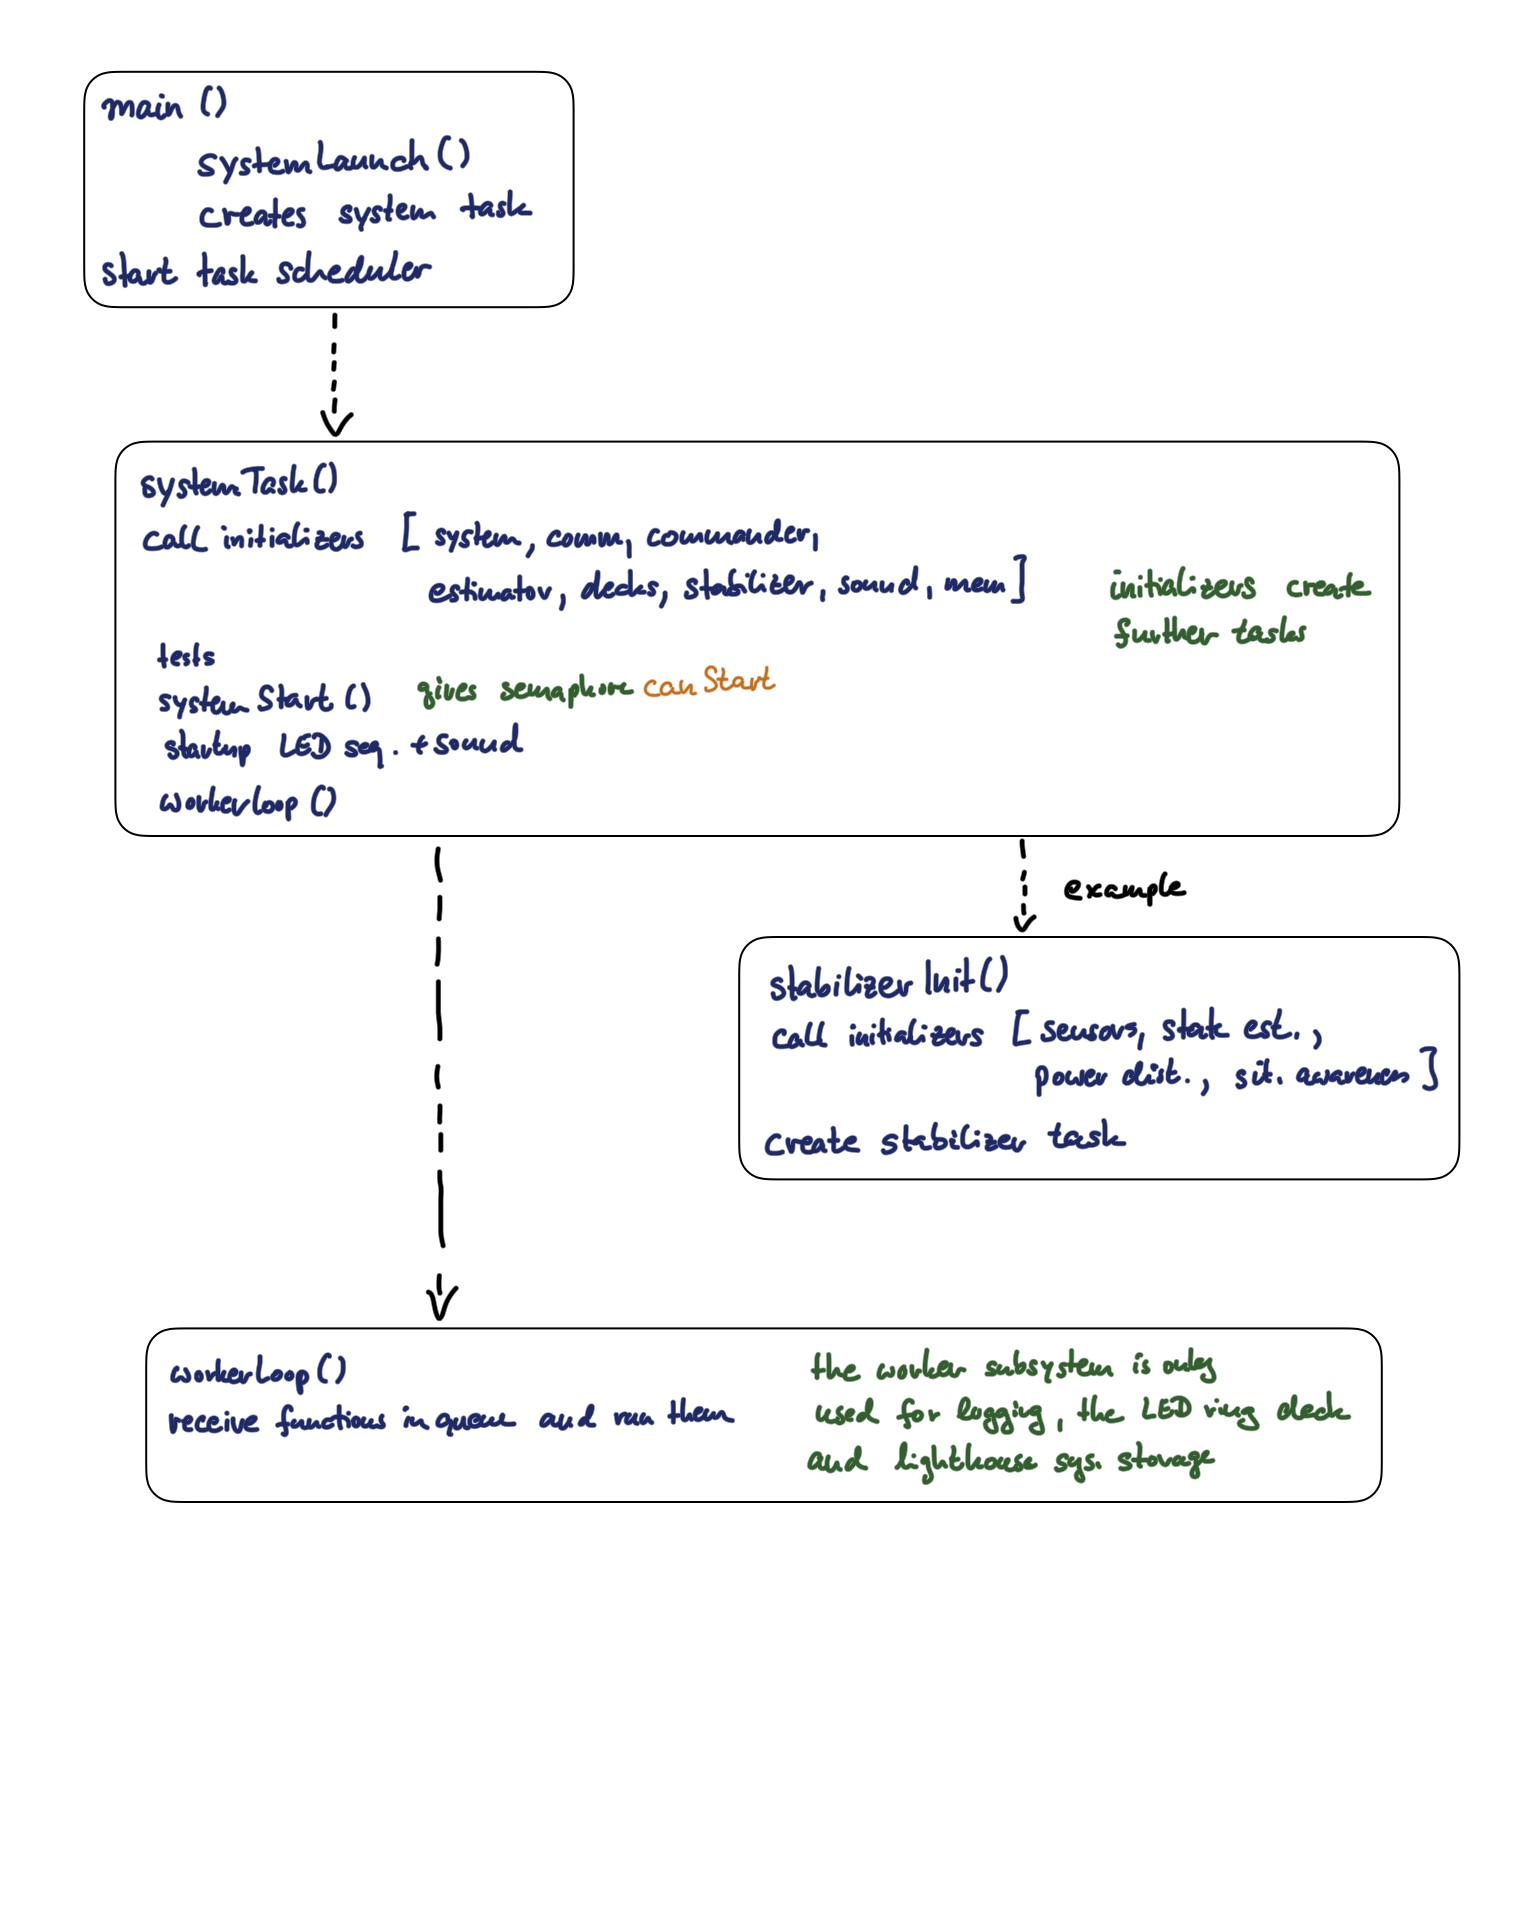 main ()
systemLaunch ()
creates system task
start task scheduler
systemTask ()
call initializers [ system, comm, commander,
estimator, decks, stabilizer, sound, mem ]
initializers create
further tasks
tests
systemStart () gives semaphore canStart
startup LED seq. + sound
workerloop ()
example
stabilizerInit ()
call initializers [ sensors, state est.,
power dist., sit. awareness ]
create stabilizer task
workerLoop ()
receive functions in queue and run them
the worker subsystem is only
used for logging, the LED ring deck
and lighthouse sys. storage